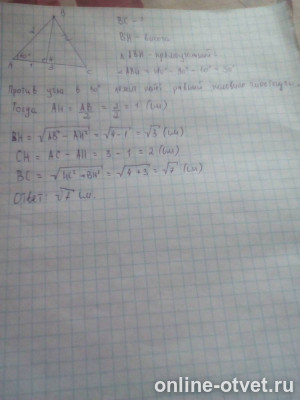 B
BC = ?
BH - высота
△ABH - прямоугольный
2
A
C
Против угла в 30° лежит катет равный половине гипотенузы.
Тогда AH = AB/2 = 2/2 = 1 (см)
BH = √AB² - AH² = √4-1 = √3 (см)
CH = AC - AH = 3 - 1 = 2 (см)
BC = √CH² + BH² = √4+3 = √7 (см)
Ответ: √7 см.
online-otvet.ru